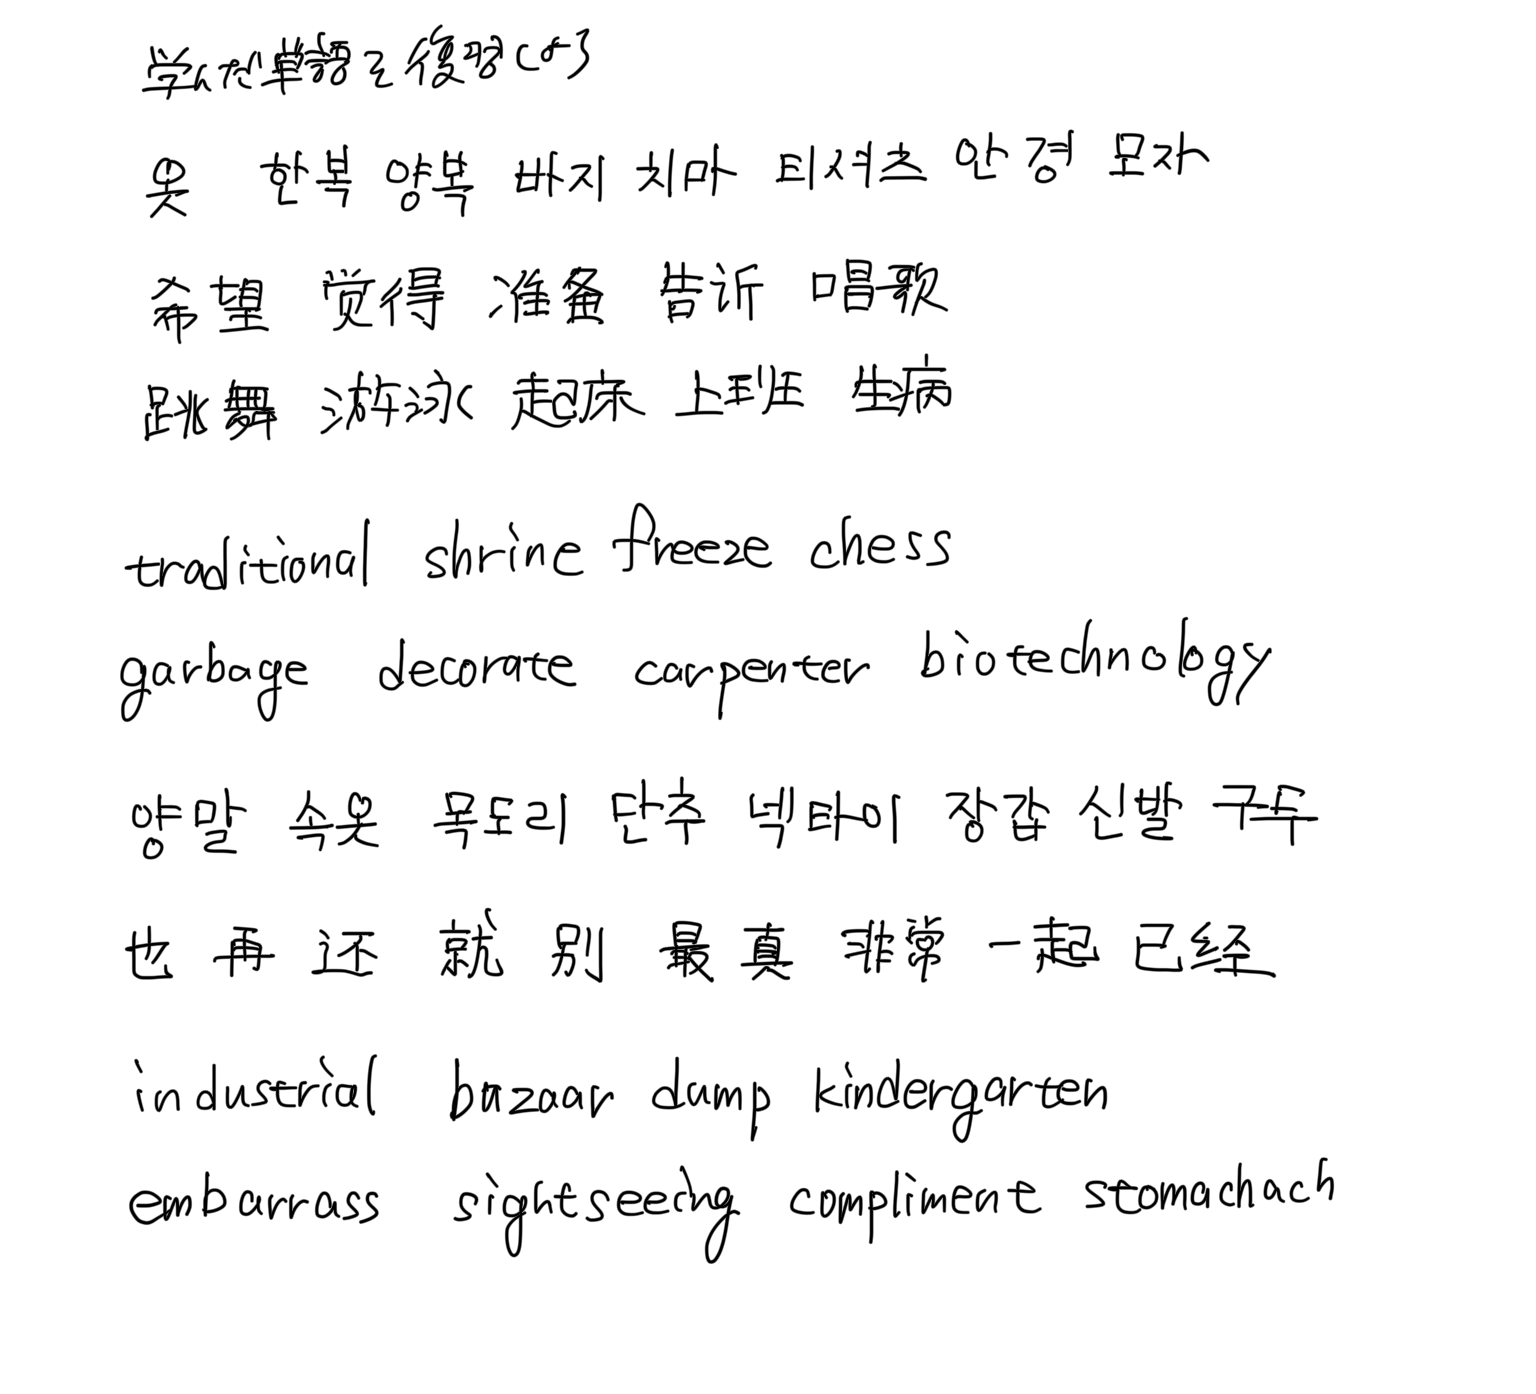 学んだ単語を復習しよう
옷 한복 양복 바지 치마 티셔츠 안경 모자
希望 觉得 准备 告诉 唱歌
跳舞 游泳 起床 上班 生病
traditional shrine freeze chess
garbage decorate carpenter biotechnology
양말 속옷 목도리 단추 넥타이 장갑 신발 구두
也 再 还 就 别 最 真 非常 一起 已经
industrial bazaar dump kindergarten
embarrass sightseeing compliment stomachach